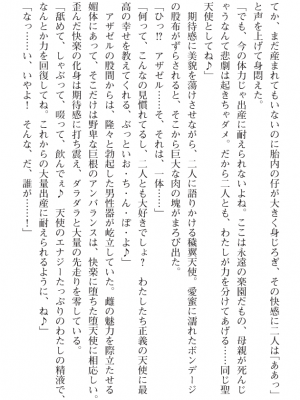 てか、まだ産まれてもいないのに胎内の仔が大きく身じろぎ、その快感に二人は「ああっ」
と声を上げて身悶えた。
「でも、今の体力じゃ出産に耐えられないよね。ここは永遠の楽園だもの、母親が死んじ
ゃうなんて悲劇は起きちゃダメ。だから二人とも、わたしが力を分けてあげる……同じ聖
天使としてね♪」
期待感に美貌を蕩けさせながら、二人に語りかける穢翼天使。愛蜜に濡れたボンデージ
の股布がずらされると、そこから巨大な肉の塊がまろび出た。
「ひっ？ アザゼル……そ、それは、一体……」
「何って、こんなの見慣れてるし、二人とも大好きでしょ？ わたしたち正義の天使に最
高の幸せを教えてくれる、ぶっといお・ち・ん・ぽ・よ♪」
アザゼルの股間からは、隆々と勃起した男性器が屹立していた。雌の魅力を際立てる
媚体にあって、そこだけは野卑な巨根のアンバランスは、快楽に堕ちた堕天使に相応しい。
歪んだ快楽の化身は期待感に打ち震え、ダラダラと大量の先走りを零している。
「舐めて、しゃぶって、啜って、飲んでぇ♪ 天使のエナジーたっぷりのわたしの精液で、
なんとか力を回復してね。これからの大量出産に耐えられるように、ね♪」
「なっ……い、いやよ！ そんな、だ、誰が……！」